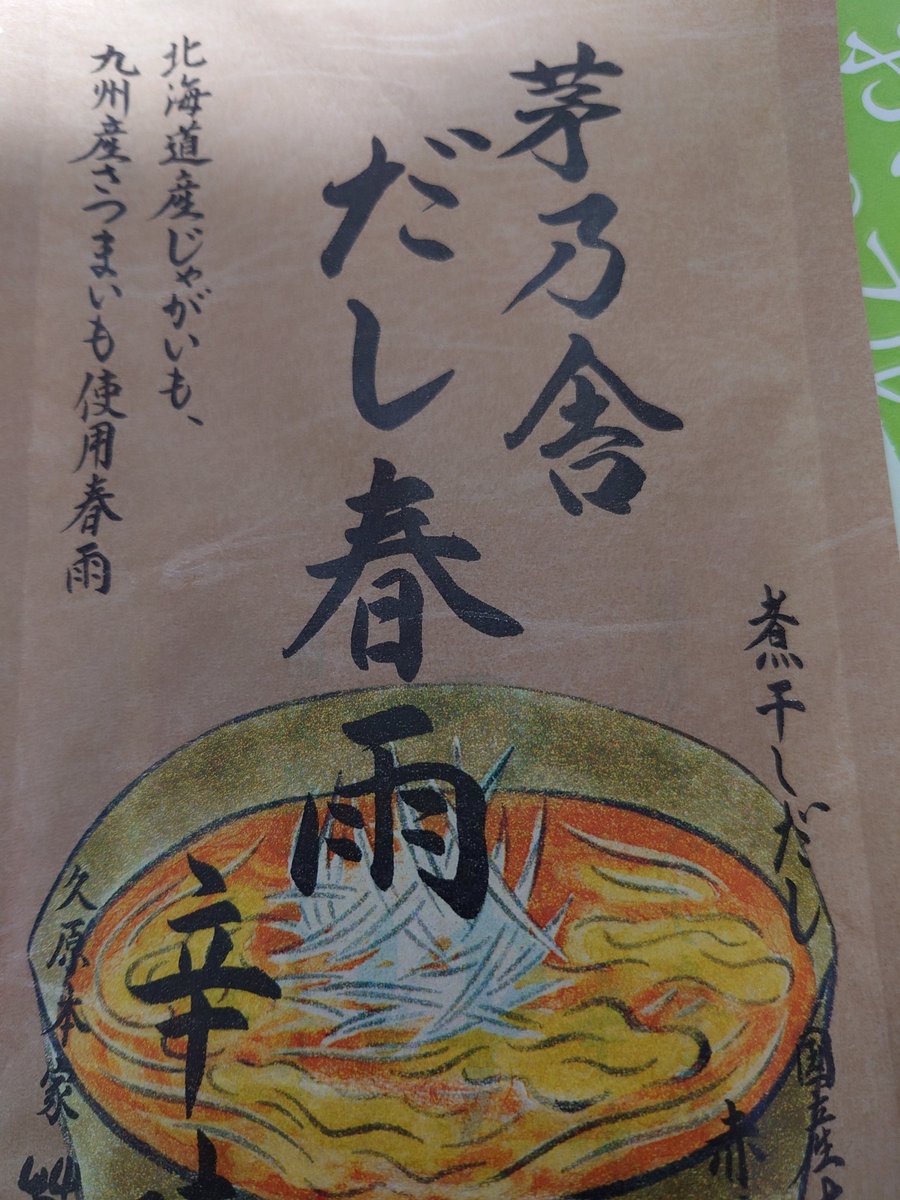 茅乃舎
だし春雨
北海道産じゃがいも、
九州産さつまいも使用春雨
煮干しだし
国産
赤
辛
久原本家